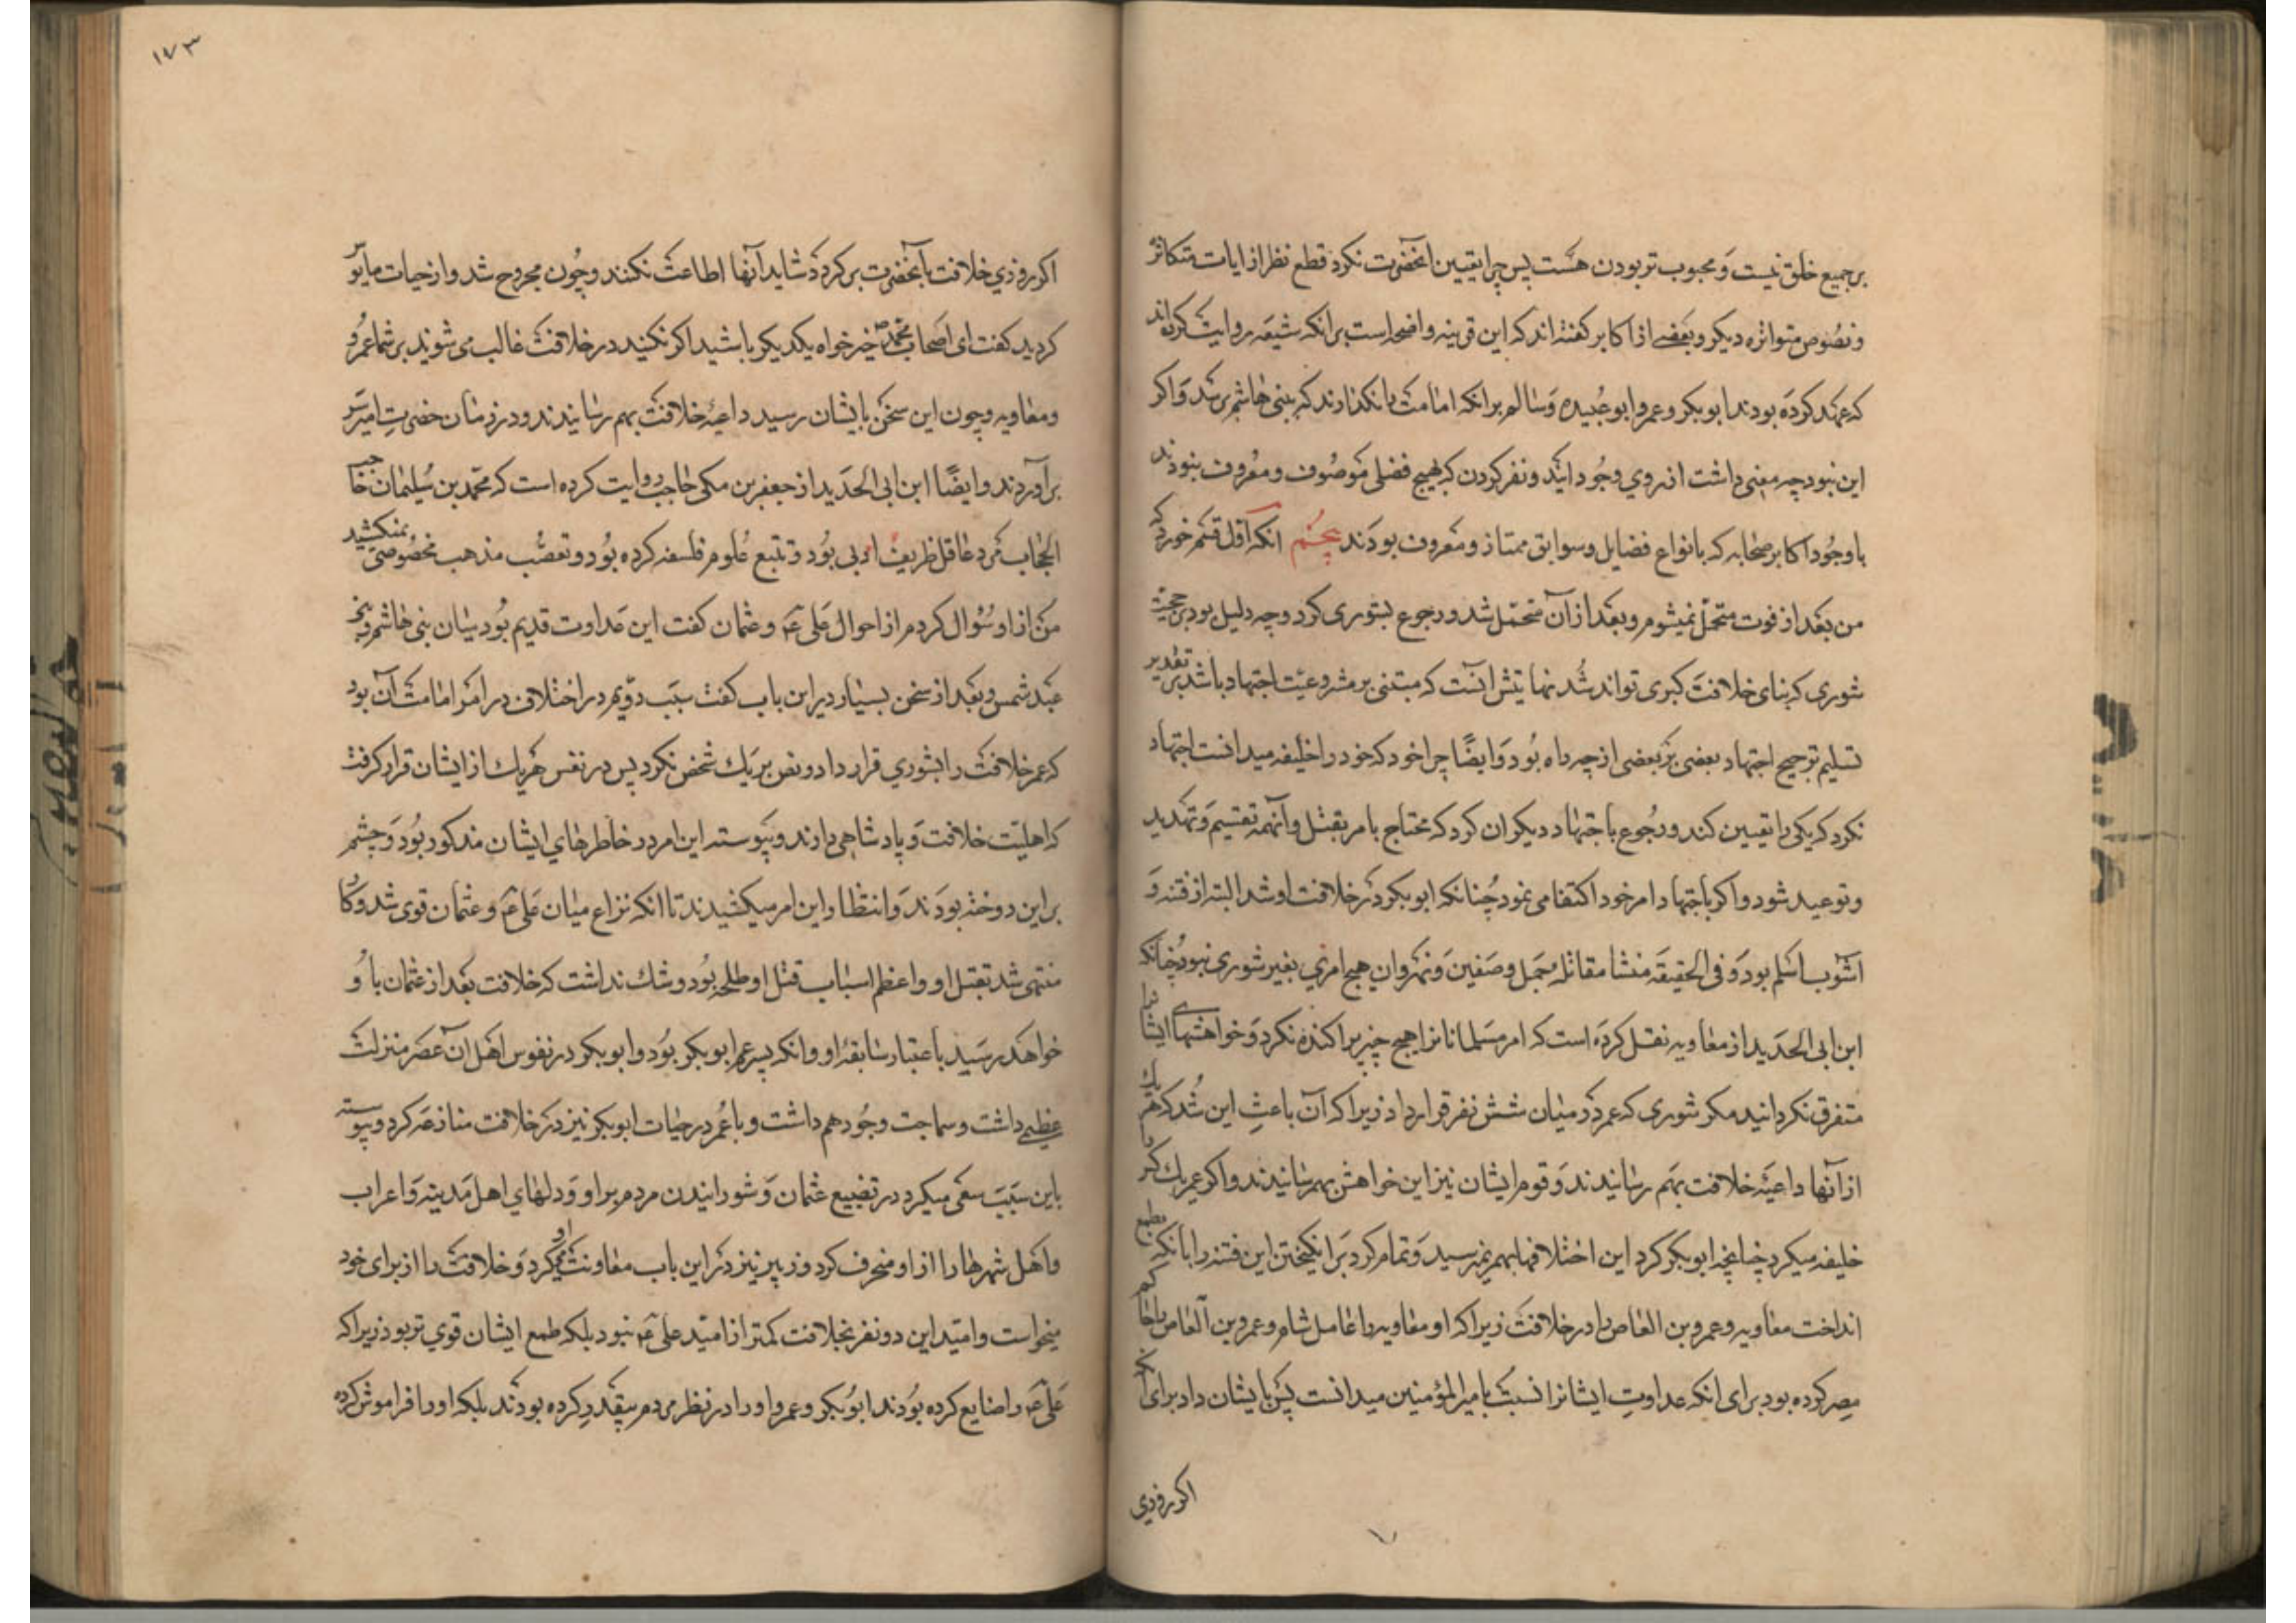 برجمیع خلق نیست و محبوب تر بودن هست پس چرا تعیین انحضرت نکرد قطع نظر از ایات متکاثره
و نصوص متواتره دیکر و بعضے از اکابر کفته اند که این قرینه واضحه است برانکه شیعه روایت کرده اند
که عهد کرده بودند ابوبکر و عمر و ابوعبیده و سالم برانکه امامت را نکذارند که ببنی هاشم برسد و اکر
این نبود چه معنی داشت از روی وجود این دو نفر کردن که بهیچ فضلی موصوف و معروف نبودند
با وجود اکابر صحابه که بانواع فضایل و سوابق ممتاز و معروف بودند پنجم انکه اول قسم خورد که
من بعد از فوت متحمل نمیشوم و بعد از آن متحمل شد و رجوع بشوری کرد و چه دلیل بود بر حجیت
شوری که بنای خلافت کبری تواند شد نهایتش انست که مبتنی بر مشروعیت اجتهاد باشد بر تقدیر
تسلیم ترجیح اجتهاد بعضی بر بعضی از چه راه بود و ایضًا چرا خود که خود را خلیفه میدانست اجتهاد
نکرد که یکی را تعیین کند و رجوع باجتهاد دیکران کرد که محتاج بامر بقتل و آنهمه تقسیم و تهدید
و توعید شود و اکر باجتهاد امر خود اکتفا می نمود چنانکه ابوبکر در خلافت او شد البته از فتنه و
اشوب اسلم بود و فی الحقیقه منشا مقاتله جمل و صفین و نهروان هیچ امری بغیر شوری نبود چنانکه
ابن ابی الحدید از معاویه نقل کرده است که امر مسلمانانرا هیچ چیز پراکنده نکرد و خواهشهای ایشانرا
متفرق نکردانید مکر شوری که عمر در میان شش نفر قرار داد زیرا که آن باعث این شد که هر یک
از آنها داعیه خلافت بهم رسانیدند و قوم ایشان نیز این خواهش بهم رسانیدند و اکر عمر یک کس را
خلیفه میکرد چنانچه ابوبکر کرد این اختلافها بهم نمیرسید و تمام کرد برانکیختن این فتنه را بانکه بطمع
انداخت معاویه و عمرو بن العاص را در خلافت زیرا که او معاویه را عامل شام و عمرو بن العاص را حاکم
مصر کرده بود برای انکه عداوت ایشانرا نسبت بامیرالمؤمنین میدانست پس بایشان داد برای انکه
اکر روزی
١٧٣
اکر روزی خلافت بآنحضرت برکردد شاید آنها اطاعت نکنند و چون مجروح شد و از حیات مایوس
کردید کفت ای اصحاب محمد ص خیرخواه یکدیکر باشید اکر نکنید در خلافت غالب می شوند بر شما عمرو
و معاویه و چون این سخن بایشان رسید داعیه خلافت بهم رسانیدند و در زمان حضرت امیر سر
برآوردند و ایضًا ابن ابی الحدید از جعفر بن مکی حاجب روایت کرده است که محمد بن سلیمان حاجب
الحجاب مرد عاقل ظریف ادبی بود و تتبع علوم فلسفه کرده بود و تعصب مذهب مخصوصی نمیکشید
من از او سؤال کردم از احوال علی ع و عثمان کفت این عداوت قدیم بود میان بنی هاشم و بنی
عبد شمس و بعد از سخن بسیار در این باب کفت سبب دویم در اختلاف در امر امامت آن بود
که عمر خلافت را بشوری قرار داد و نص بر یک شخص نکرد پس در نفس هر یک از ایشان قرار کرفت
که اهلیت خلافت و پادشاهی دارند و پیوسته این امر در خاطرهای ایشان مذکور بود و چشم
بر این دوخته بودند و انتظار این امر میکشیدند تا انکه نزاع میان علی ع و عثمان قوی شد و کار
منتهی شد بقتل او و اعظم اسباب قتل او طلحه بود و شک نداشت که خلافت بعد از عثمان باو
خواهد رسید باعتبار سابقه او و انکه پسر عم ابوبکر بود و ابوبکر در نفوس اهل ان عصر منزلت
عظیمی داشت و سماجت وجود هم داشت و با عمر در حیات ابوبکر نیز در خلافت منازعه کرد و پیوسته
باین سبب سعی میکرد در تضییع عثمان و شورانیدن مردم بر او و دلهای اهل مدینه و اعراب
و اهل شهرها را از او منحرف کرد و زبیر نیز در این باب معاونت او میکرد و خلافت را از برای خود
میخواست و امید این دو نفر بخلافت کمتر از امید علی ع نبود بلکه طمع ایشان قوی تر بود زیرا که
علی ع را ضایع کرده بودند ابوبکر و عمر و او را در نظر مردم بیقدر کرده بودند بلکه او را فراموش کرده